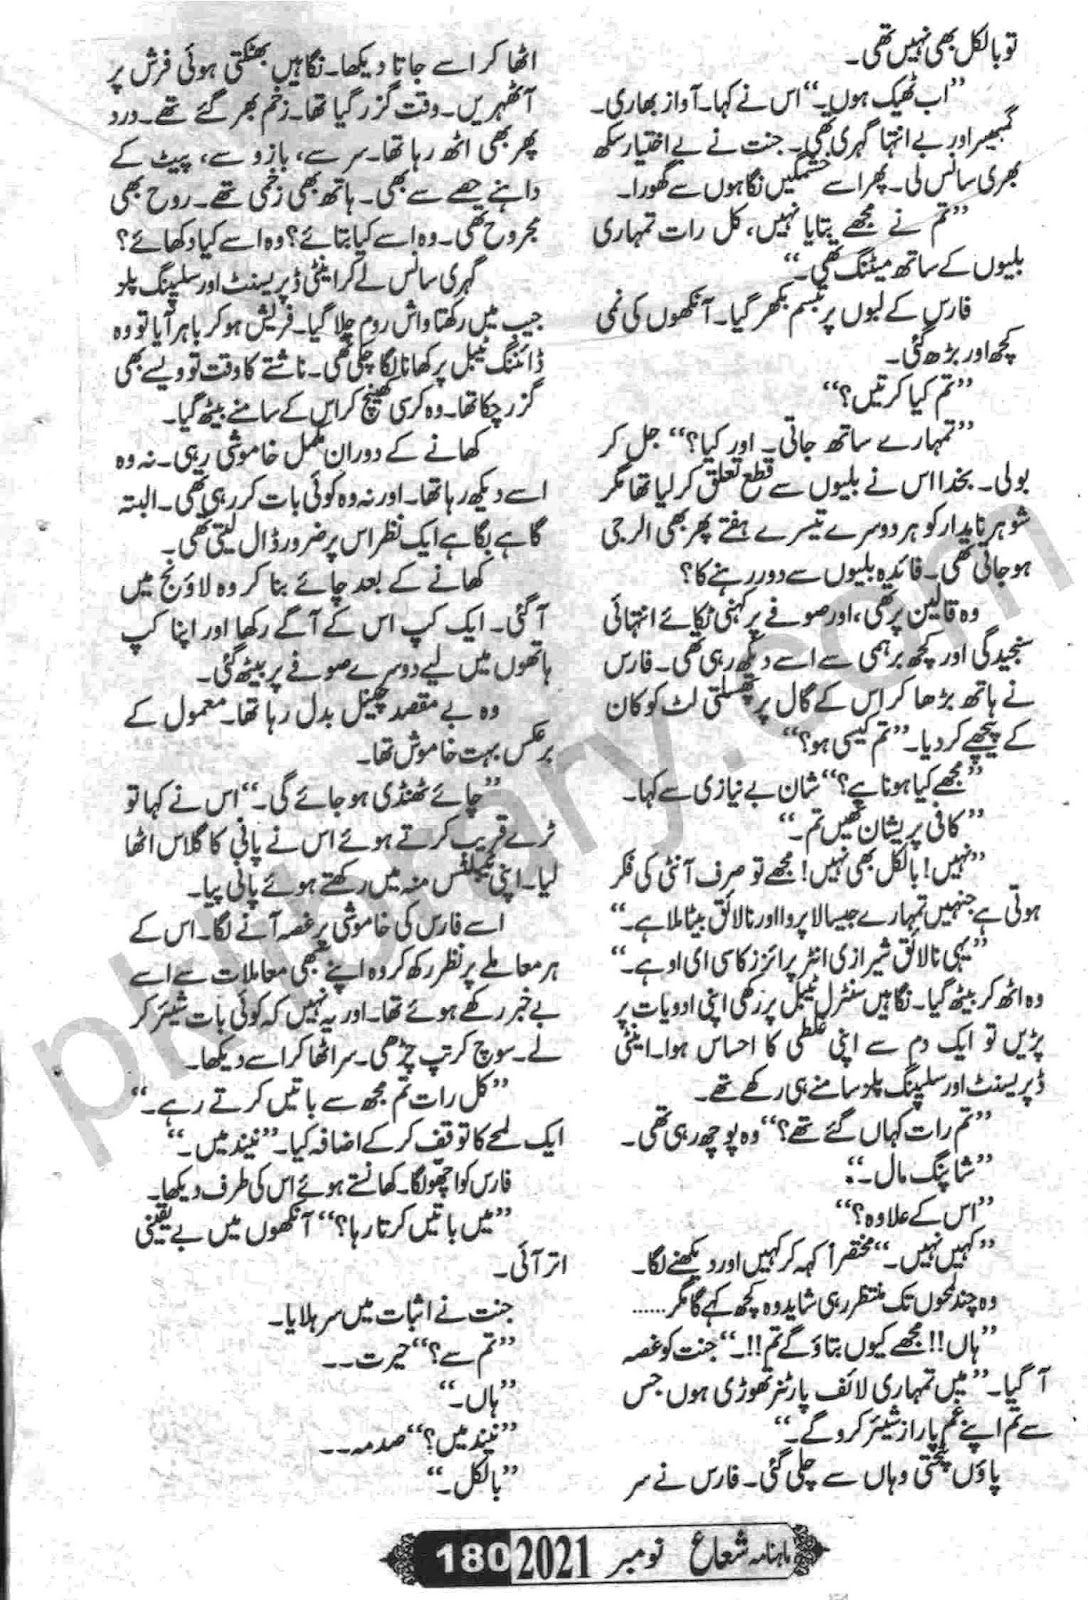 تو بالکل بھی نہیں تھی۔
’’اب ٹھیک ہوں۔‘‘ اس نے کہا۔ آواز بھاری۔
گمبھیر اور بے انتہا گہری تھی۔ جنت نے بے اختیار سکھ
بھری سانس لی۔ پھر اسے خشمگیں نگاہوں سے گھورا۔
’’تم نے مجھے بتایا نہیں، کل رات تمہاری
بلیوں کے ساتھ میٹنگ تھی۔‘‘
فارس کے لبوں پر تبسم بکھر گیا۔ آنکھوں کی نمی
کچھ اور بڑھ گئی۔
’’تم کیا کرتیں؟‘‘
’’تمہارے ساتھ جاتی۔ اور کیا؟‘‘ جل کر
بولی۔ بخدا اس نے بلیوں سے قطع تعلق کر لیا تھا مگر
شوہر نایدار کو ہر دوسرے تیسرے ہفتے پھر بھی الرجی
ہو جاتی تھی۔ فائدہ بلیوں سے دور رہنے کا؟
وہ قالین پر تھی، اور صوفے پر کہنی ٹکائے انتہائی
سنجیدگی اور کچھ برہمی سے اسے دیکھ رہی تھی۔ فارس
نے ہاتھ بڑھا کر اس کے گال پر پھسلتی لٹ کو کان
کے پیچھے کر دیا۔ ’’تم کیسی ہو؟‘‘
’’مجھے کیا ہونا ہے؟‘‘ شان بے نیازی سے کہا۔
’’کافی پریشان تھیں تم۔‘‘
’’نہیں! بالکل بھی نہیں! مجھے تو صرف آنٹی کی فکر
ہوتی ہے جنہیں تمہارے جیسا لاپروا اور نالائق بیٹا ملا ہے۔‘‘
’’یہی نالائق شیرازی انٹرپرائزز کا سی ای او ہے۔‘‘
وہ اٹھ کر بیٹھ گیا۔ نگاہیں سنٹرل ٹیبل پر رکھی اپنی ادویات پر
پڑیں تو ایک دم سے اپنی غلطی کا احساس ہوا۔ اینٹی
ڈپریسنٹ اور سلیپنگ پلز سامنے ہی رکھے تھے۔
’’تم رات کہاں گئے تھے؟‘‘ وہ پوچھ رہی تھی۔
’’شاپنگ مال۔‘‘
’’اس کے علاوہ؟‘‘
’’کہیں نہیں۔‘‘ مختصراً کہہ کر کہیں اور دیکھنے لگا۔
وہ چند لمحوں تک منتظر رہی شاید وہ کچھ کہے گا مگر......
’’ہاں!! مجھے کیوں بتاؤ گے تم!!۔‘‘ جنت کو غصہ
آ گیا۔ ’’میں تمہاری لائف پارٹنر تھوڑی ہوں جس
سے تم اپنے غم یا راز شیئر کرو گے۔‘‘
پاؤں پٹختی وہاں سے چلی گئی۔ فارس نے سر
اٹھا کر اسے جاتا دیکھا۔ نگاہیں بھٹکتی ہوئی فرش پر
آ ٹھہریں۔ وقت گزر گیا تھا۔ زخم بھر گئے تھے۔ درد
پھر بھی اٹھ رہا تھا۔ سر سے، بازو سے، پیٹ کے
داہنے حصے سے بھی۔ ہاتھ بھی زخمی تھے۔ روح بھی
مجروح تھی۔ وہ اسے کیا بتائے؟ وہ اسے کیا دکھائے؟
گہری سانس لے کر اینٹی ڈپریسنٹ اور سلیپنگ پلز
جیب میں رکھتا واش روم چلا گیا۔ فریش ہو کر باہر آیا تو وہ
ڈائننگ ٹیبل پر کھانا لگا چکی تھی۔ ناشتے کا وقت تو ویسے بھی
گزر چکا تھا۔ وہ کرسی کھینچ کر اس کے سامنے بیٹھ گیا۔
کھانے کے دوران مکمل خاموشی رہی۔ نہ وہ
اسے دیکھ رہا تھا۔ اور نہ وہ کوئی بات کر رہی تھی۔ البتہ
گاہے بگاہے ایک نظر اس پر ضرور ڈال لیتی تھی۔
کھانے کے بعد چائے بنا کر وہ لاؤنج میں
آ گئی۔ ایک کپ اس کے آگے رکھا اور اپنا کپ
ہاتھوں میں لیے دوسرے صوفے پر بیٹھ گئی۔
وہ بے مقصد چینل بدل رہا تھا۔ معمول کے
برعکس بہت خاموش تھا۔
’’چائے ٹھنڈی ہو جائے گی۔‘‘ اس نے کہا تو
ٹرے قریب کرتے ہوئے اس نے پانی کا گلاس اٹھا
لیا۔ اپنی ٹیبلٹس منہ میں رکھتے ہوئے پانی پیا۔
اسے فارس کی خاموشی پر غصہ آنے لگا۔ اس کے
ہر معاملے پر نظر رکھ کر وہ اپنے سبھی معاملات سے اسے
بے خبر رکھے ہوئے تھا۔ اور یہ نہیں کہ کوئی بات شیئر کر
لے۔ سوچ کر تپ چڑھی۔ سر اٹھا کر اسے دیکھا۔
’’کل رات تم مجھ سے باتیں کرتے رہے۔‘‘
ایک لمحے کا توقف کر کے اضافہ کیا۔ ’’نیند میں۔‘‘
فارس کو اچھو لگا۔ کھانستے ہوئے اس کی طرف دیکھا۔
’’میں باتیں کرتا رہا؟‘‘ آنکھوں میں بے یقینی
اتر آئی۔
جنت نے اثبات میں سر ہلایا۔
’’تم سے؟‘‘ حیرت۔۔
’’ہاں۔‘‘
’’نیند میں؟‘‘ صدمہ۔۔
’’بالکل۔‘‘
ماہنامہ شعاع نومبر 2021 180
pklibrary.com